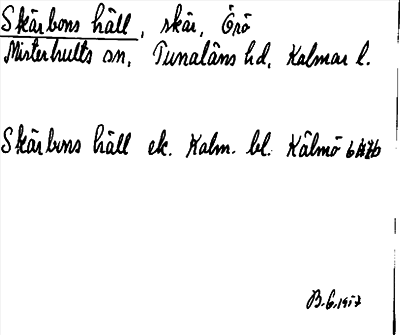 Skärbons häll, skär, Örö
Misterhults sn, Tunaläns hd, Kalmar l.
Skärbons häll ek. Kalm. bl. Kälmö
B.G. 1957